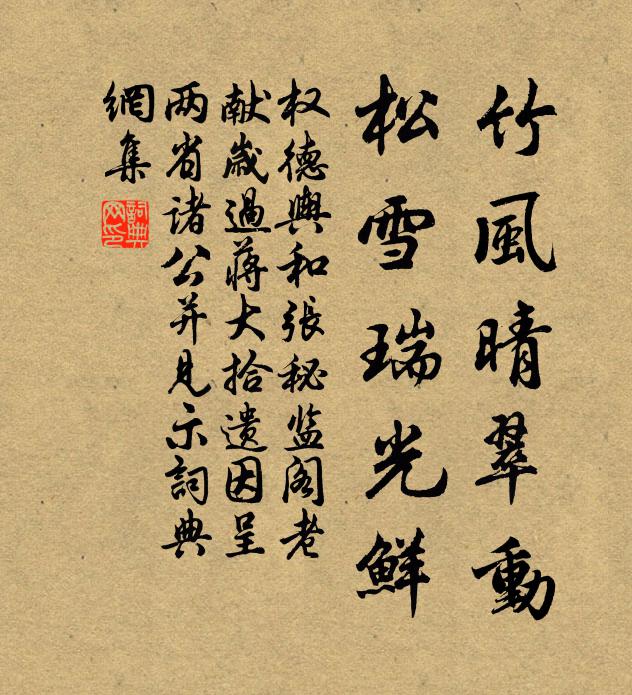 竹風晴翠動
松雪瑞光鮮
权德輿和張秘监阁老
献歲過蔣大拾遗因呈
两省诸公并見示詞典
網集
詞典網印